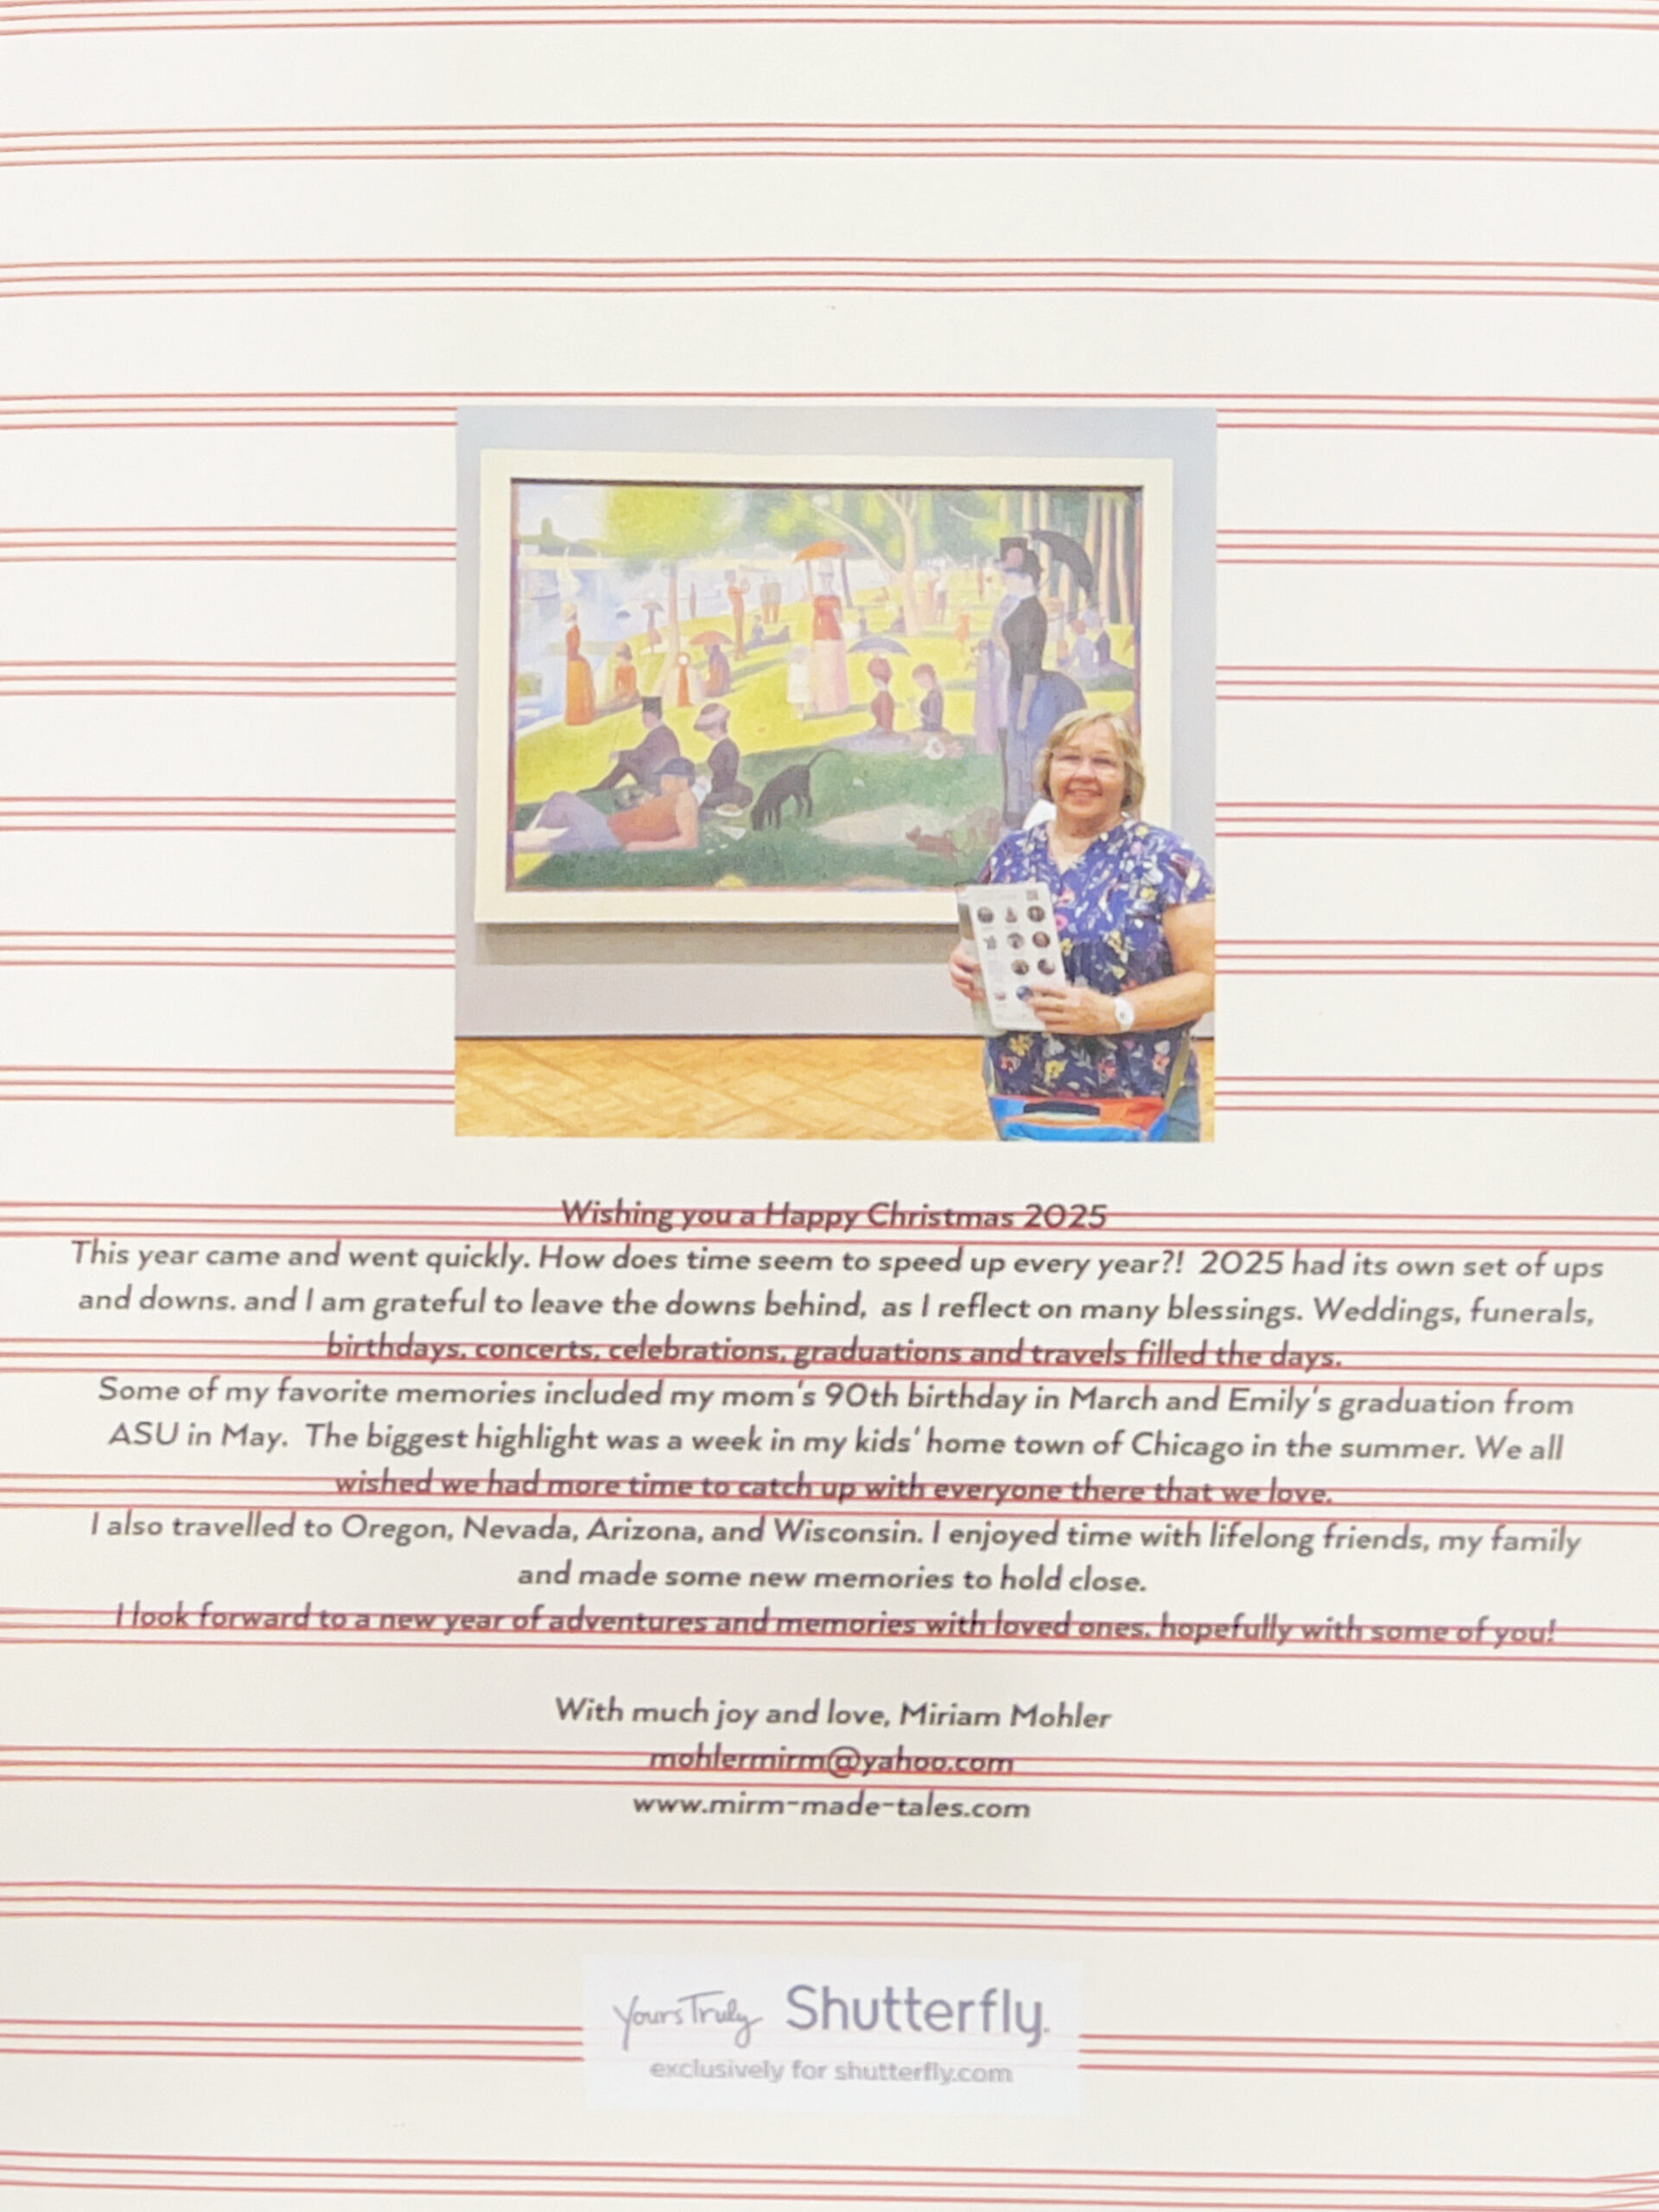 Wishing you a Happy Christmas 2025
This year came and went quickly. How does time seem to speed up every year?! 2025 had its own set of ups
and downs. and I am grateful to leave the downs behind, as I reflect on many blessings. Weddings, funerals,
birthdays, concerts, celebrations, graduations and travels filled the days.
Some of my favorite memories included my mom's 90th birthday in March and Emily's graduation from
ASU in May. The biggest highlight was a week in my kids' home town of Chicago in the summer. We all
wished we had more time to catch up with everyone there that we love.
I also travelled to Oregon, Nevada, Arizona, and Wisconsin. I enjoyed time with lifelong friends, my family
and made some new memories to hold close.
I look forward to a new year of adventures and memories with loved ones, hopefully with some of you!
With much joy and love, Miriam Mohler
mohlermirm@yahoo.com
www.mirm-made-tales.com
Yours Truly Shutterfly.
exclusively for shutterfly.com